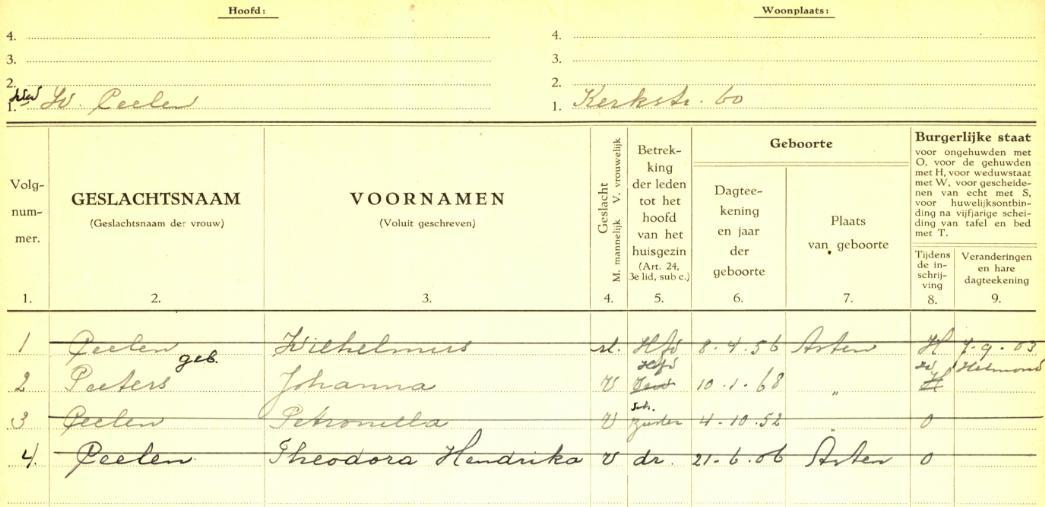 Hoofd: Woonplaats:
4. 4.
3. 3.
2. 2.
1. Wed W. Peelen 1. Kerkstr. 60
Volg-
num-
mer.
GESLACHTSNAAM
(Geslachtsnaam der vrouw)
VOORNAMEN
(Voluit geschreven)
Geslacht
M. mannelijk V. vrouwelijk
Betrek-
king
der leden
tot het
hoofd
van het
huisgezin
(Art. 24,
3e lid, sub c.)
Geboorte
Dagtee-
kening
en jaar
der
geboorte
Plaats
van geboorte
Burgerlijke staat
voor ongehuwden met
O, voor de gehuwden
met H, voor weduwstaat
met W, voor gescheide-
nen van echt met S,
voor huwelijksontbin-
ding na vijfjarige schei-
ding van tafel en bed
met T.
Tijdens
de in-
schrij-
ving
Veranderingen
en hare
dagteekening
1. 2. 3. 4. 5. 6. 7. 8. 9.
1 Peelen Wilhelmus M. Hfd 8-4-56 Asten H 7-9-03
geb. Hfd W Helmond
2 Peeters Johanna V 10-1-68 " H
sch.
3 Peelen Petronella V zuster 4-10-52 " O
4. Peelen Theodora Hendrika V dr. 21-6-06 Asten O